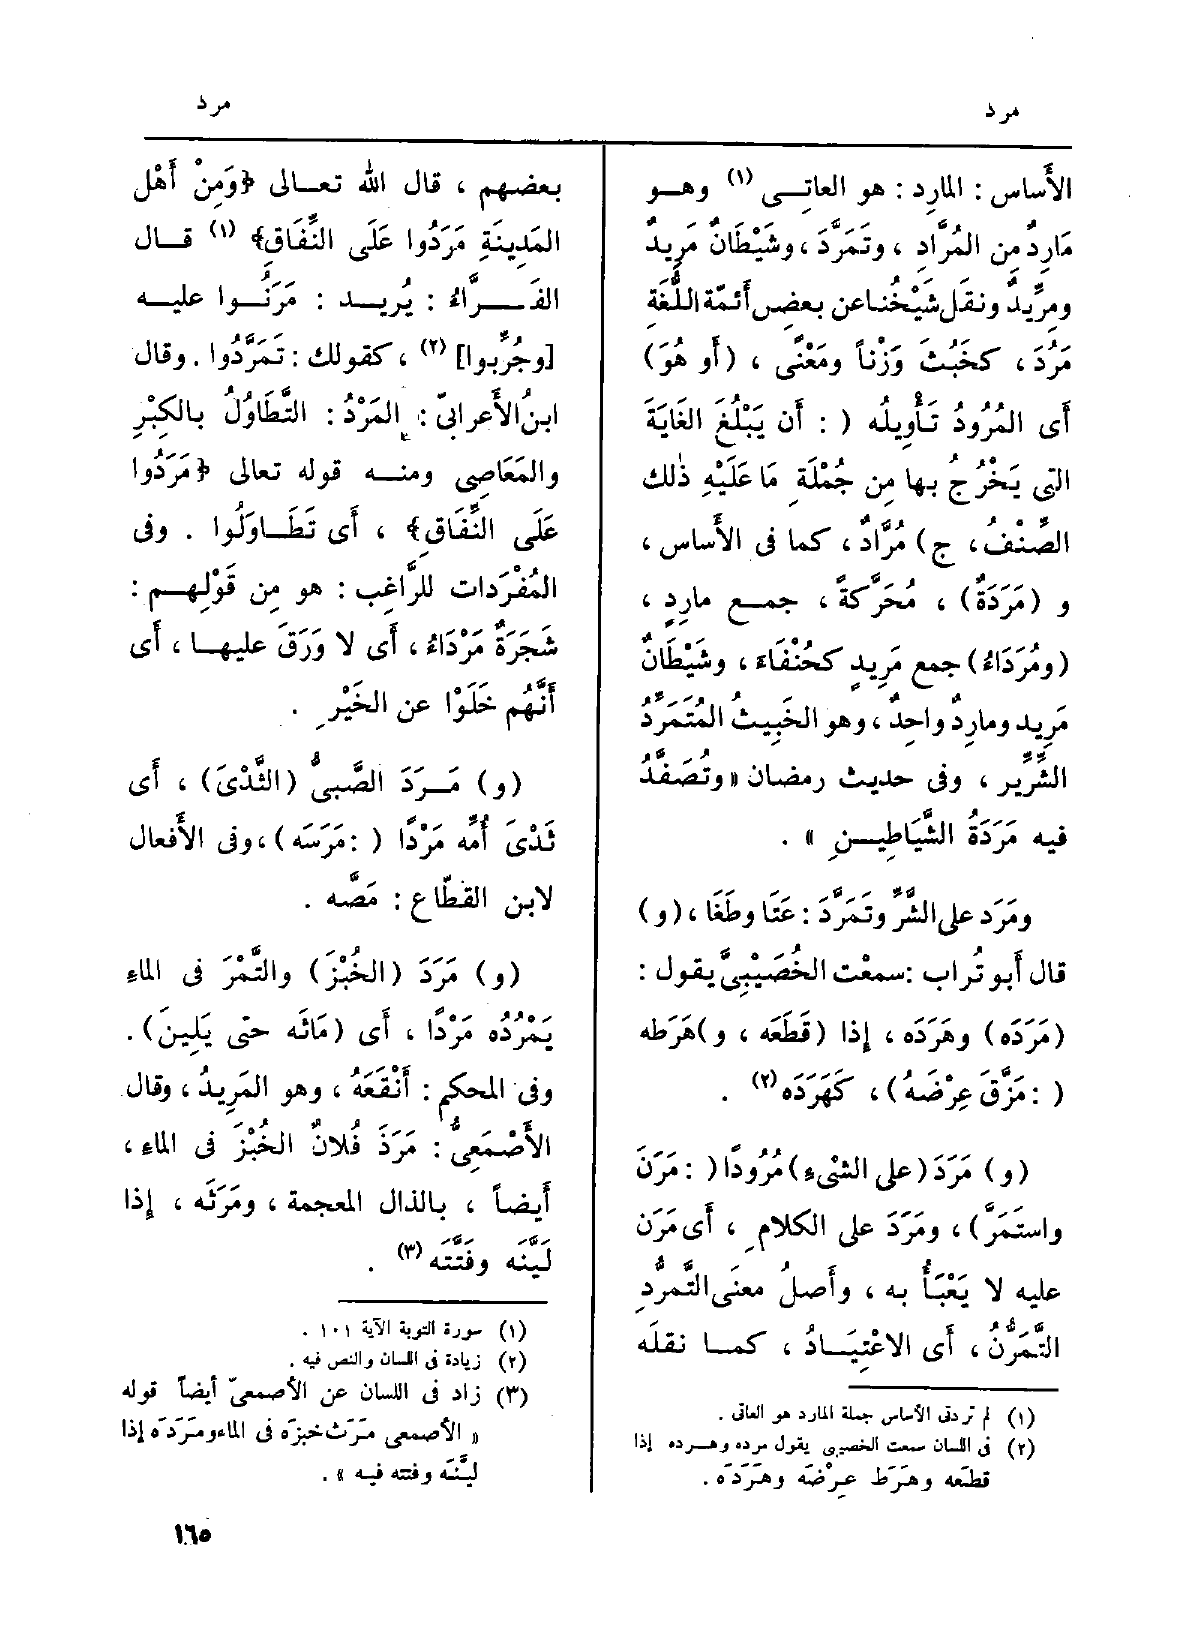 مرد
مرد
الأساس : المارِد : هو العاتِى (١) وهو
مَارِدٌ مِن المُرَّادِ ، وتَمَرَّدَ ، وشَيْطَانٌ مَرِيدٌ
ومِرِّيدٌ ونقل شَيْخُنا عن بعض أئمّة اللُّغَةِ
مَرُدَ ، كخَبُثَ وَزْناً ومَعْنًى ، (أو هُوَ)
أى المُرُودُ تَأْوِيلُه ( : أن يَبْلُغَ الغَايَةَ
التى يَخْرُجُ بها مِن جُمْلَةِ مَا عَلَيْهِ ذٰلك
الصِّنْفُ ، ج) مُرَّادٌ ، كما فى الأساس ،
و (مَرَدَةٌ) ، مُحَرَّكةً ، جمع مارِدٍ ،
(ومُرَدَاءُ) جمع مَرِيدٍ كحُنَفَاءَ ، وشَيْطَانٌ
مَرِيد ومارِدٌ واحِدٌ ، وهو الخَبِيثُ المُتَمَرِّدُ
الشِّرِّير ، وفى حديث رمضان « وتُصَفَّدُ
فيه مَرَدَةُ الشَّيَاطِين » .
ومَرَد على الشَّرِّ وتَمَرَّدَ : عَتَا وطَغَا ، (و)
قال أبو تُراب : سمعْت الخُصَيْبِىَّ يقول :
(مَرَدَه) وهَرَدَه ، إذا (قَطَعَه ، و) هَرَطه
( : مَزَّقَ عِرْضَهُ) ، كَهَرَدَه (٢) .
(و) مَرَدَ (على الشىْءِ) مُرُودًا ( : مَرَنَ
واستَمَرَّ) ، ومَرَدَ على الكلامِ ، أى مَرَن
عليه لا يَعْبَأُ به ، وأصلُ معنَى التَّمَرُّدِ
التَّمَرُّنُ ، أى الاعْتِيَادُ ، كما نقلَه
(١) لم تردفى الأساس جملة المارد هو العاتى .
(٢) فى اللسان سمعت الخصيبى يقول مرده وهرده إذا
قطَعه وهَرَط عِرْضَه وهَرَدَه .
بعضهم ، قال الله تعالى ﴿وَمِنْ أَهْلِ
المَدِينَةِ مَرَدُوا عَلَى النِّفَاقِ﴾ (١) قال
الفَرَّاءُ : يُريد : مَرَنُوا عليه
[وجُرِّبوا] (٢) ، كقولك : تَمَرَّدُوا . وقال
ابنُ الأَعرابىّ : المَرْدُ : التَّطَاوُلُ بالكِبْرِ
والمَعَاصِى ومنه قوله تعالى ﴿مَرَدُوا
عَلَى النِّفَاقِ﴾ ، أى تَطَاوَلُوا . وفى
المُفْرَدَات للرَّاغِب : هو مِن قَوْلِهم :
شَجَرَةٌ مَرْدَاءُ ، أى لا وَرَقَ عليها ، أى
أَنَّهُم خَلَوْا عن الخَيْرِ .
(و) مَرَدَ الصَّبىُّ (الثَّدْىَ) ، أى
ثَدْىَ أُمِّه مَرْدًا ( : مَرَسَه) ، وفى الأفعال
لابن القطّاع : مَصَّه .
(و) مَرَدَ (الخُبْزَ) والتَّمْرَ فى الماءِ
يَمْرُدُه مَرْدًا ، أى (مَاثَه حتى يَلِينَ) .
وفى المحكم : أَنْقَعَهُ ، وهو المَرِيدُ ، وقال
الأَصْمَعِىُّ : مَرَذَ فُلانٌ الخُبْزَ فى الماءِ ،
أيضاً ، بالذال المعجمة ، ومَرَثَه ، إذا
لَيَّنَه وفَتَّتَه (٣) .
(١) سورة التوبة الآية ١٠١ .
(٢) زيادة فى اللسان والنص فيه .
(٣) زاد فى اللسان عن الأصمعىّ أيضاً قوله
« الأصمعى مَرَث خبزَه فى الماء ومَرَدَه إذا
ليَّنَه وفتته فيه » .
١٦٥